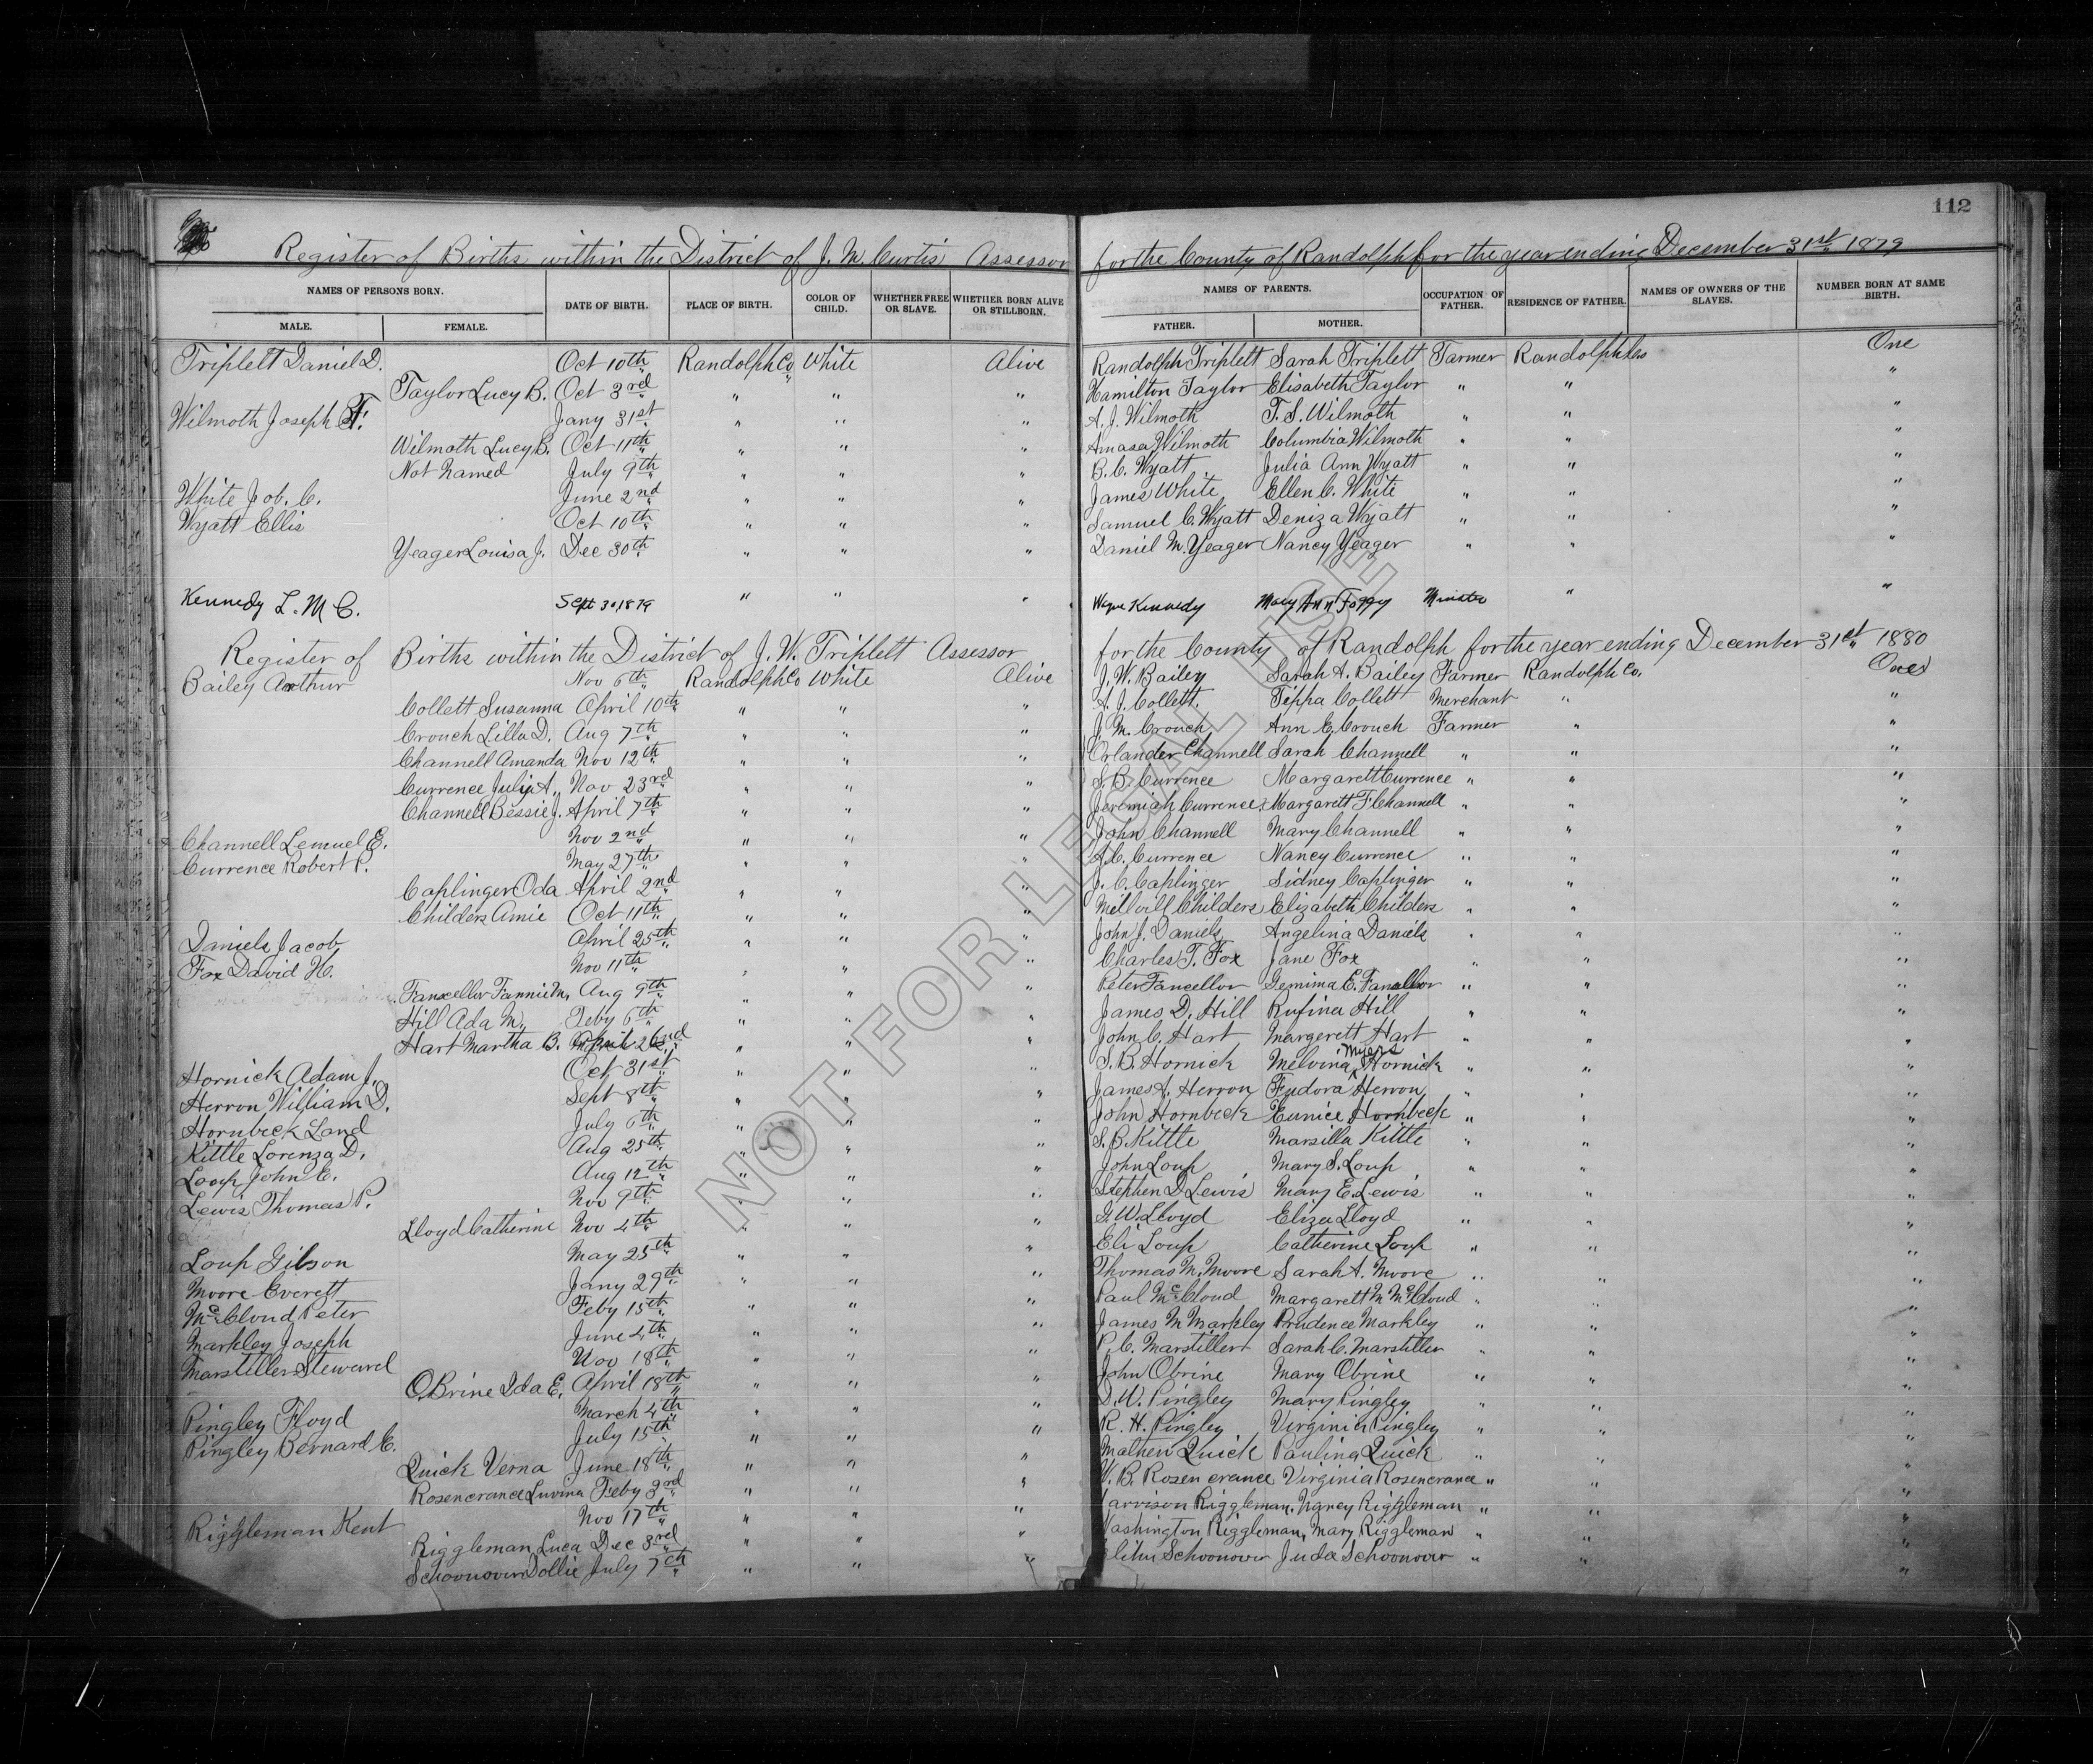 112
Register of Births within the District of J. M. Curtis Assessor for the County of Randolph for the year ending December 31st 1879
NAMES OF PERSONS BORN. DATE OF BIRTH. PLACE OF BIRTH. COLOR OF CHILD. WHETHER FREE OR SLAVE. WHETHER BORN ALIVE OR STILLBORN. NAMES OF PARENTS. OCCUPATION OF FATHER. RESIDENCE OF FATHER. NAMES OF OWNERS OF THE SLAVES. NUMBER BORN AT SAME BIRTH.
MALE. FEMALE. FATHER. MOTHER.
Triplett Daniel D. Oct 10th Randolph Co White Alive Randolph Triplett Sarah Triplett Farmer Randolph Co One
Taylor Lucy B. Oct 3rd " " " Hamilton Taylor Elisabeth Taylor " " "
Wilmoth Joseph F. Jany 31st " " " A. J. Wilmoth T. S. Wilmoth " " "
Wilmoth Lucy B. Oct 11th " " " Amasa Wilmoth Columbia Wilmoth " " "
Not Named July 9th " " " B. C. Wyatt Julia Ann Wyatt " " "
White Job. C. June 2nd " " " James White Ellen C. White " " "
Wyatt Ellis Oct 10th " " " Samuel C. Wyatt Deniza Wyatt " " "
Yeager Louisa J. Dec 30th " " " Daniel M. Yeager Nancy Yeager " " "
Kennedy L. M C. Sept 30, 1879 " " " Kennedy Mary Ann Minister " "
Register of Births within the District of J. W. Triplett Assessor for the County of Randolph for the year ending December 31st 1880
Bailey Arthur Nov 6th Randolph Co White Alive J. W. Bailey Sarah A. Bailey Farmer Randolph Co. One
Collett Susanna April 10th " " " A. J. Collett. Tippa Collett Merchant " "
Crouch Lilla D. Aug 7th " " " J. M. Crouch Ann E. Crouch Farmer " "
Channell Amanda Nov 12th " " " Orlander Channell Sarah Channell " " "
Currence Julia A. Nov 23rd " " " S. B. Currence Margarett Currence " " "
Channell Bessie J. April 7th " " " Jeremiah Currence Margarett F. Channell " " "
Channell Lemuel E. Nov 2nd " " " John Channell Mary Channell " " "
Currence Robert P. May 27th " " " A. C. Currence Nancy Currence " " "
Caplinger Oda April 2nd " " " J. C. Caplinger Sidney Caplinger " " "
Childers Amie Oct 11th " " " Millvill Childers Elizabeth Childers " " "
Daniels Jacob April 25th " " " John J. Daniels Angelina Daniels " " "
Fox David H. Nov 11th " " " Charles T. Fox Jane Fox " " "
Fancellor Fannie M. Aug 9th " " " Peter Fancellor Gemima E. " " "
Hill Ada M. Feby 6th " " " James D. Hill Rufina Hill " " "
Hart Martha B. April " " " John C. Hart Margerett Hart " " "
Hornick Adam J. Oct 31st " " " S. B. Hornick Melvina Myers Hornick " " "
Herron William D. Sept 8th " " " James A. Herron Fudora Herron " " "
Hornbeck Land July 6th " " " John Hornbeck Eunice Hornbeck " " "
Kittle Lorenza D. Aug 25th " " " S. B. Kittle Marsilla Kittle " " "
Loup John C. Aug 12th " " " John Loup Mary S. Loup " " "
Lewis Thomas P. Nov 9th " " " Stephen D. Lewis Mary E. Lewis " " "
Lloyd Catherine Nov 4th " " " G. W. Lloyd Eliza Lloyd " " "
Loup Gilson May 25th " " " Eli Loup Catherine Loup " " "
Moore Everett Jany 29th " " " Thomas M. Moore Sarah A. Moore " " "
McCloud Peter Feby 15th " " " Paul McCloud Margarett M McCloud " " "
Markley Joseph June 4th " " " James M Markley Prudence Markley " " "
Marstiller Steward Nov 18th " " " P. C. Marstiller Sarah C. Marstiller " " "
O.Brine Ida E. April 18th " " " John Obrine Mary Obrine " " "
Pingley Floyd March 4th " " " D. W. Pingley Mary Pingley " " "
Pingley Bernard C. July 15th " " " R. H. Pingley Virginia Pingley " " "
Quick Verna June 18th " " " Mathew Quick Paulina Quick " " "
Rosencrance Luvina Feby 3rd " " " W. B. Rosencrance Virginia Rosencrance " " "
Riggleman Kent Nov 17th " " " Harrison Riggleman, Nancy Riggleman " " "
Riggleman Luca Dec 3rd " " " Washington Riggleman, Mary Riggleman " " "
Schoonover Dollie July 7th " " " Elihu Schoonover Juda Schoonover " " "
NOT FOR LEGAL USE